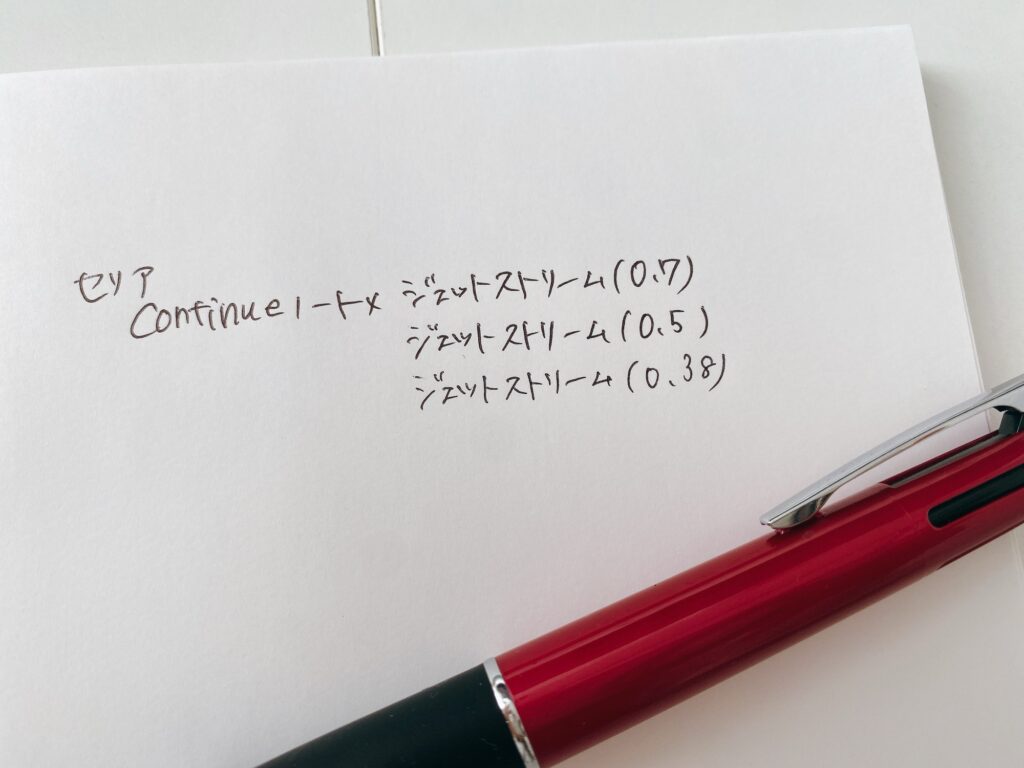 セリア
Continueノート× ジェットストリーム(0.7)
ジェットストリーム(0.5)
ジェットストリーム(0.38)